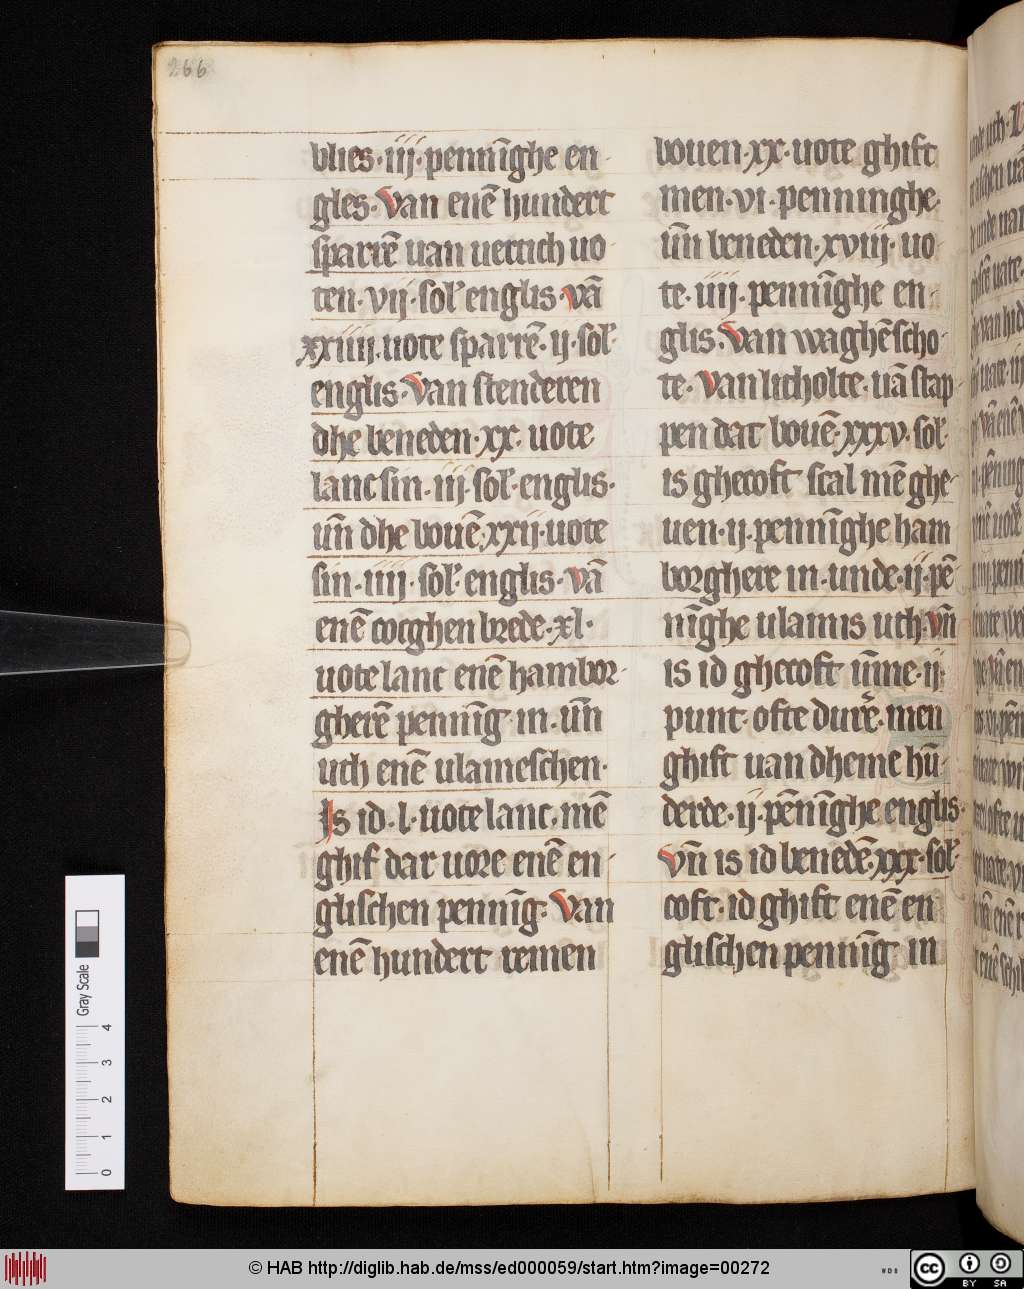 266
vlies·iij·penni̅ghe en
gles·Van ene̅ hundert
sparre̅ uan uertich uo
ten·vij·sol' englis·va̅
xxiiij·uote sparre̅·ij·sol'
englis·Van stenderen
dhe beneden·xx·uote
lanc sin·iij·sol'·englis·
un̅ dhe boue̅·xxij·uote
sin·iiij·sol'·englis·va̅
ene̅ cocghen brede·xl·
uote lanc ene̅ hambor
ghere̅ penni̅g·in·un̅
uth ene̅ ulameschen·
Is id·l·uote lanc·me̅
ghif dar uore ene̅ en
glischen penni̅g·Van
ene̅ hundert remen
bouen·xx·uote ghift
men·vi·penninghe·
un̅ beneden·xviij·uo
te·iiij·penni̅ghe en
glis·Van waghe̅scho
te·Van litholte·ua̅ stap
pen dat boue̅·xxxv·sol'
is ghecoft scal me̅ ghe
uen·ij·penni̅ghe ham
borghere in·unde·ij·pe̅
ni̅ghe ulamis uth·vn̅
is id ghecoft um̅me·ij·
punt·ofte dure̅·men
ghift uan dheme hu̅
derde·ij·pe̅ni̅ghe englis·
Vn̅ is id benede̅·xxx·sol'
coft·id ghift ene̅ en
glischen penni̅g in
Gray Scale
4
3
2
1
0
© HAB http://diglib.hab.de/mss/ed000059/start.htm?image=00272
WDB
cc
BY SA